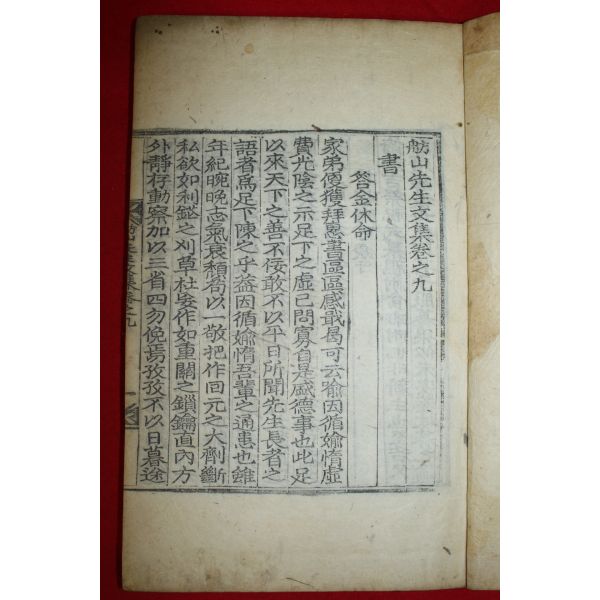 舫山先生文集卷之九
書
答金休命
家弟便獲拜惠書區區感戢曷可云喩因循婾惰虛
費光陰之示足下之虛已問寡自是盛德事也此足
以來天下之善不佞敢不以平日所聞先生長者之
語者爲足下陳之乎盖因循婾惰吾輩之通患也雖
年紀晼晩志氣衰頹苟以一敬把作回元之大劑斷
私欲如利鎰之刈草杜妄作如重關之鎖鑰直內方
外靜存動察加以三省四勿俛焉孜孜不以日暮途
舫山先生文集卷之九
一